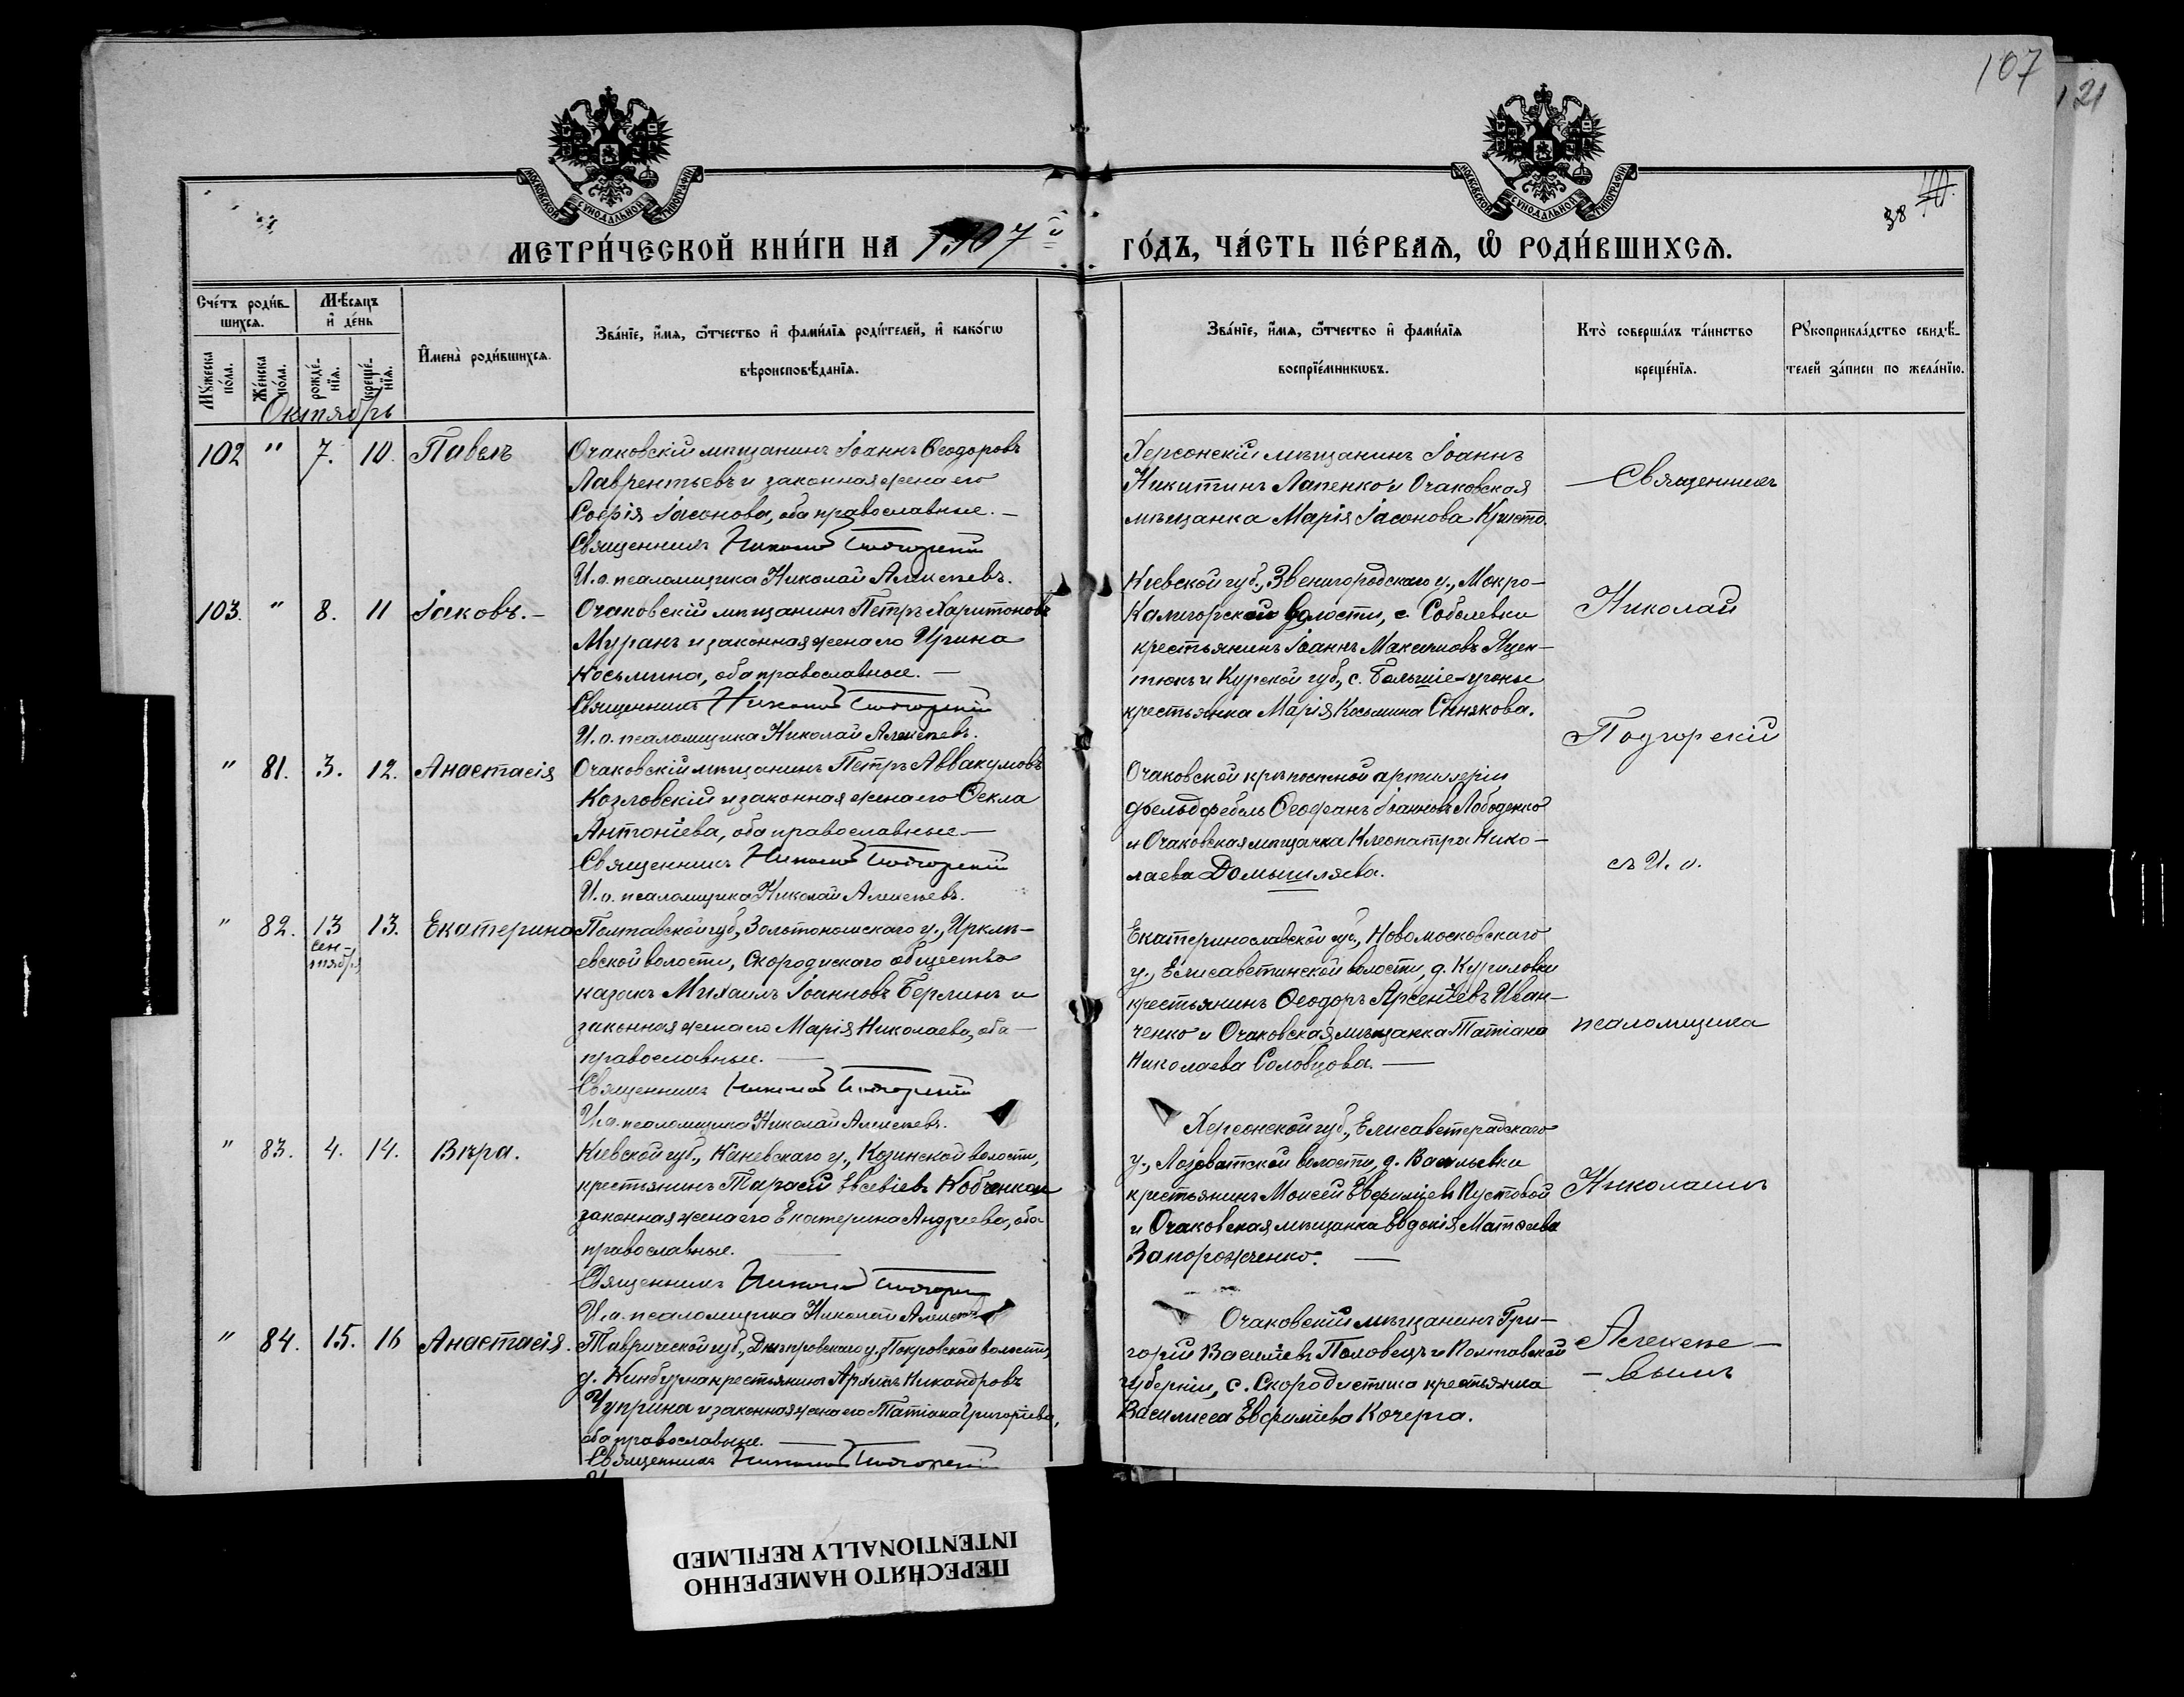 107
121
МОСКОВСКОЙ СѴНОДАЛЬНОЙ ТИПОГРАФІИ
МОСКОВСКОЙ СѴНОДАЛЬНОЙ ТИПОГРАФІИ
38
МЕТРИ́ЧЕСКОЙ КНИ́ГИ НА 1907й ГО́ДЪ, ЧА́СТЬ ПЕ́РВАѦ, Ѽ РОДИ́ВШИХСѦ.
Сче́тъ роди́в-
шихсѧ.
Мѣ́сѧцъ
и҆ де́нь
Мꙋ́жеска
по́ла.
Же́нска
по́ла.
рожде́-
нїѧ.
креще́-
нїѧ.
И҆мена̀ роди́вшихсѧ.
Зва́нїе, и҆́мѧ, ѻ҆́тчество и҆ фами́лїѧ роди́телей, и҆ како́гѡ
вѣроисповѣ́данїѧ.
Зва́нїе, и҆́мѧ, ѻ҆́тчество и҆ фами́лїѧ
воспрїе́мникѡвъ.
Кто̀ соверша́лъ та́инство
креще́нїѧ.
Рꙋкоприкла́дство свидѣ́-
телей за́писи по жела́нїю.
Октябрь
102 " 7. 10. Павелъ
Очаковскій мѣщанинъ Іоаннъ Ѳеодоровъ
Лаврентьевъ и законная жена его
Софія Іасонова, оба православные. —
Священникъ Николай Подгорскій
И. о. псаломщика Николай Алексѣевъ.
Херсонскій мѣщанинъ Іоаннъ
Никитинъ Лапенко и Очаковская
мѣщанка Марія Іасонова Кристо.
Священникъ
103. " 8. 11 Іаковъ. —
Очаковскій мѣщанинъ Петръ Харитоновъ
Муранъ и законная жена его Ирина
Косьмина, оба православные. —
Священникъ Николай Подгорскій
И. о. псаломщика Николай Алексѣевъ.
Кіевской губ., Звенигородскаго у., Мокро-
Калигорской волости, с. Соболевки
крестьянинъ Іоаннъ Максимовъ Яцен-
тюкъ и Курской губ., с. Большіе-угоны
крестьянка Марія Косьмина Синякова.
Николай
Подгорскій
" 81. 3. 12. Анастасія
Очаковскій мѣщанинъ Петръ Аввакумовъ
Козловскій и законная жена его Ѳекла
Антоніева, оба православные. —
Священникъ Николай Подгорскій
И. о. псаломщика Николай Алексѣевъ.
Очаковской крѣпостной артиллеріи
фельдфебель Ѳеофанъ Іоанновъ Лободенко
и Очаковская мѣщанка Клеопатра Нико-
лаева Домышляева.
съ И. о.
" 82. 13 сен-
тября 13. Екатерина
Полтавской губ., Золотоношскаго у., Ирклѣ-
евской волости, Скородискаго общества
казакъ Михаилъ Іоанновъ Берлинъ и
законная жена его Марія Николаева, оба
православные. —
Священникъ Николай Подгорскій
И. о. псаломщика Николай Алексѣевъ.
Екатеринославской губ., Новомосковскаго
у., Елисаветинской волости, д. Куриловки
крестьянинъ Ѳеодоръ Арсеніевъ Иван-
ченко и Очаковская мѣщанка Татіана
Николаева Соловцова. —
псаломщика
" 83. 4. 14. Вѣра.
Кіевской губ., Каневскаго у., Козинской волости,
крестьянинъ Тарасій Евсевіевъ Кобченко и
законная жена его Екатерина Андреева, оба
православные. —
Священникъ Николай Подгорскій
И. о. псаломщика Николай Алексѣевъ
Херсонской губ., Елисаветградскаго
у., Лозоватской волости, д. Васильевки
крестьянинъ Моисей Евфиміевъ Пустовой
и Очаковская мѣщанка Евдокія Матѳеева
Запорожченко. —
Николаемъ
" 84. 15. 16 Анастасія.
Таврической губ., Днѣпровскаго у., Покровской волости,
д. Кинбурна крестьянинъ Архипъ Никандровъ
Чуприна и законная жена его Татіана Григоріева,
оба православные. —
Священникъ Николай Подгорскій
Очаковскій мѣщанинъ Гри-
горій Василіевъ Половецъ и Полтавской
губерніи, с. Скородистика крестьянка
Василисса Евфиміева Кочерга.
Алексѣе-
-вымъ
ПЕРЕСНЯТО НАМЕРЕННО
INTENTIONALLY REFILMED